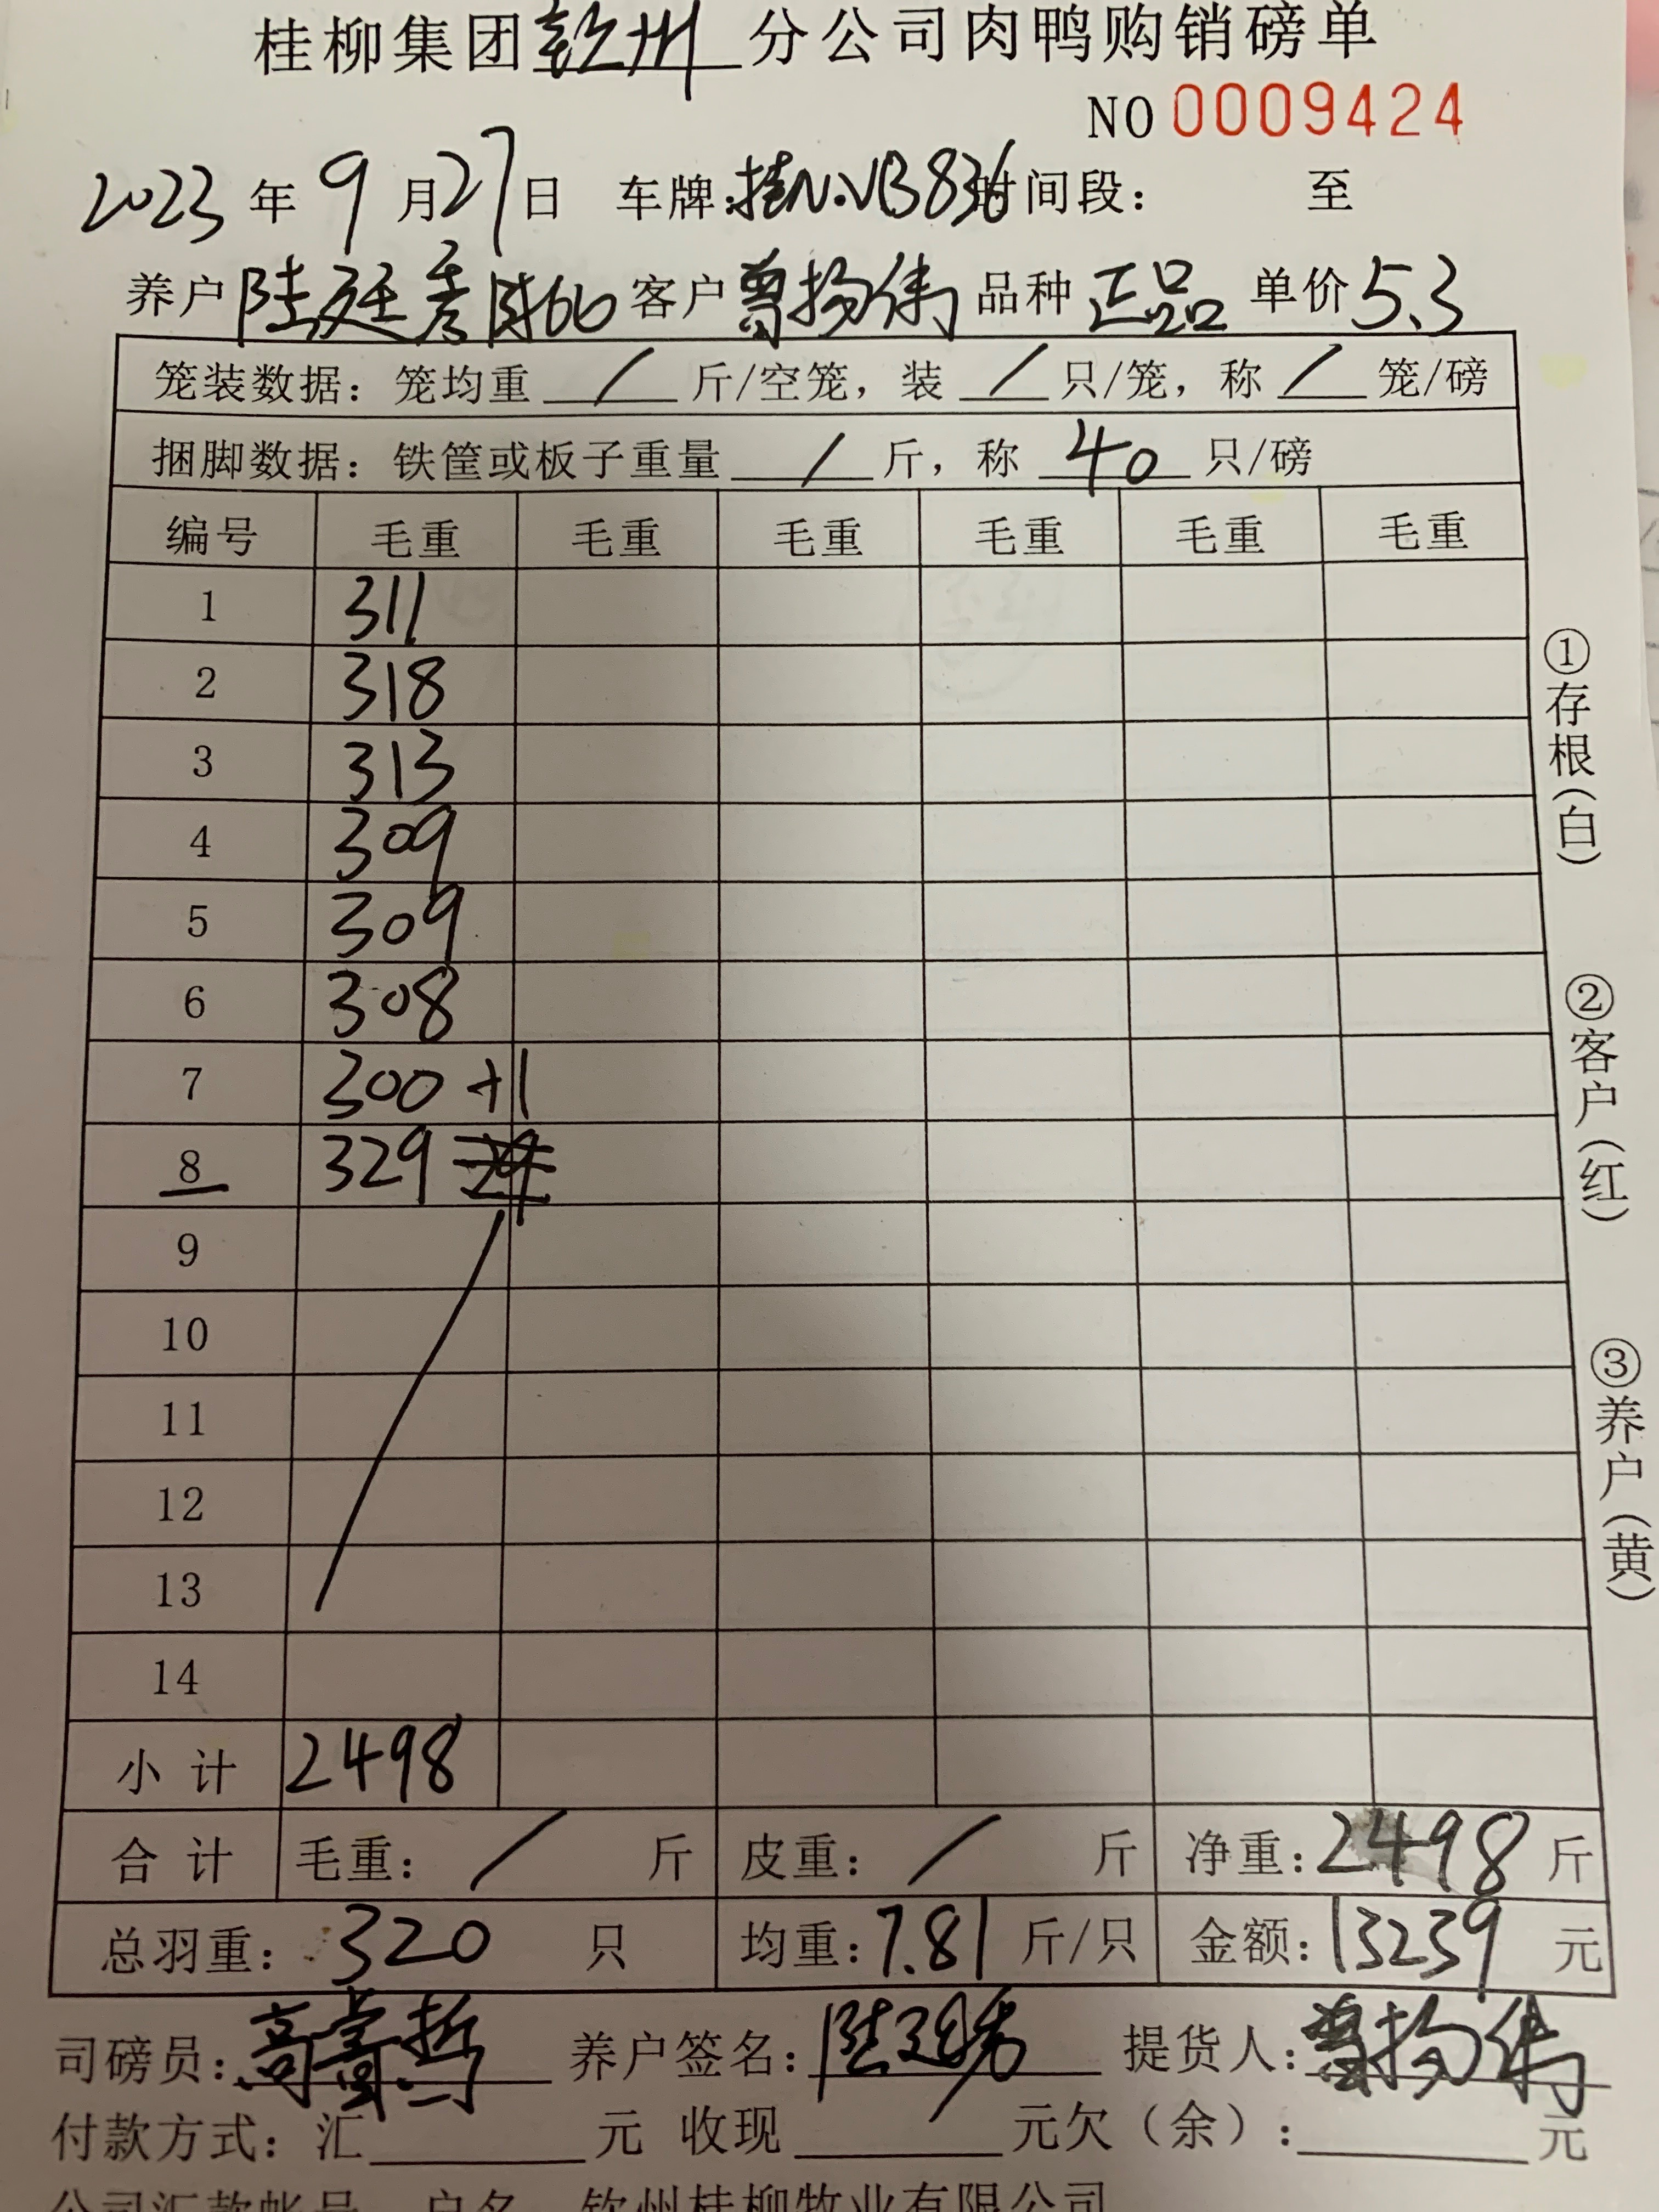 桂柳集团钦州分公司肉鸭购销磅单
NO 0009424
2023年9月27日 车牌:桂N·VB836 时间段: 至
养户 陆廷秀 客户 曾扬伟 品种 正品 单价5.3
笼装数据: 笼均重 / 斤/空笼, 装 / 只/笼, 称 / 笼/磅
捆脚数据: 铁筐或板子重量 / 斤, 称 40 只/磅
编号 毛重 毛重 毛重 毛重 毛重 毛重
1 311
2 318
3 313
4 309
5 309
6 308
7 300 +1
8 329
9
10
11
12
13
14
小计 2498
合计 毛重: / 斤 皮重: / 斤 净重:2498 斤
总羽重: 320 只 均重:7.81 斤/只 金额:13239 元
司磅员: 养户签名:陆廷秀 提货人:曾扬伟
付款方式: 汇 元 收现 元欠(余): 元
公司汇款帐号 户名 钦州桂柳牧业有限公司
①存根(白)
②客户(红)
③养户(黄)